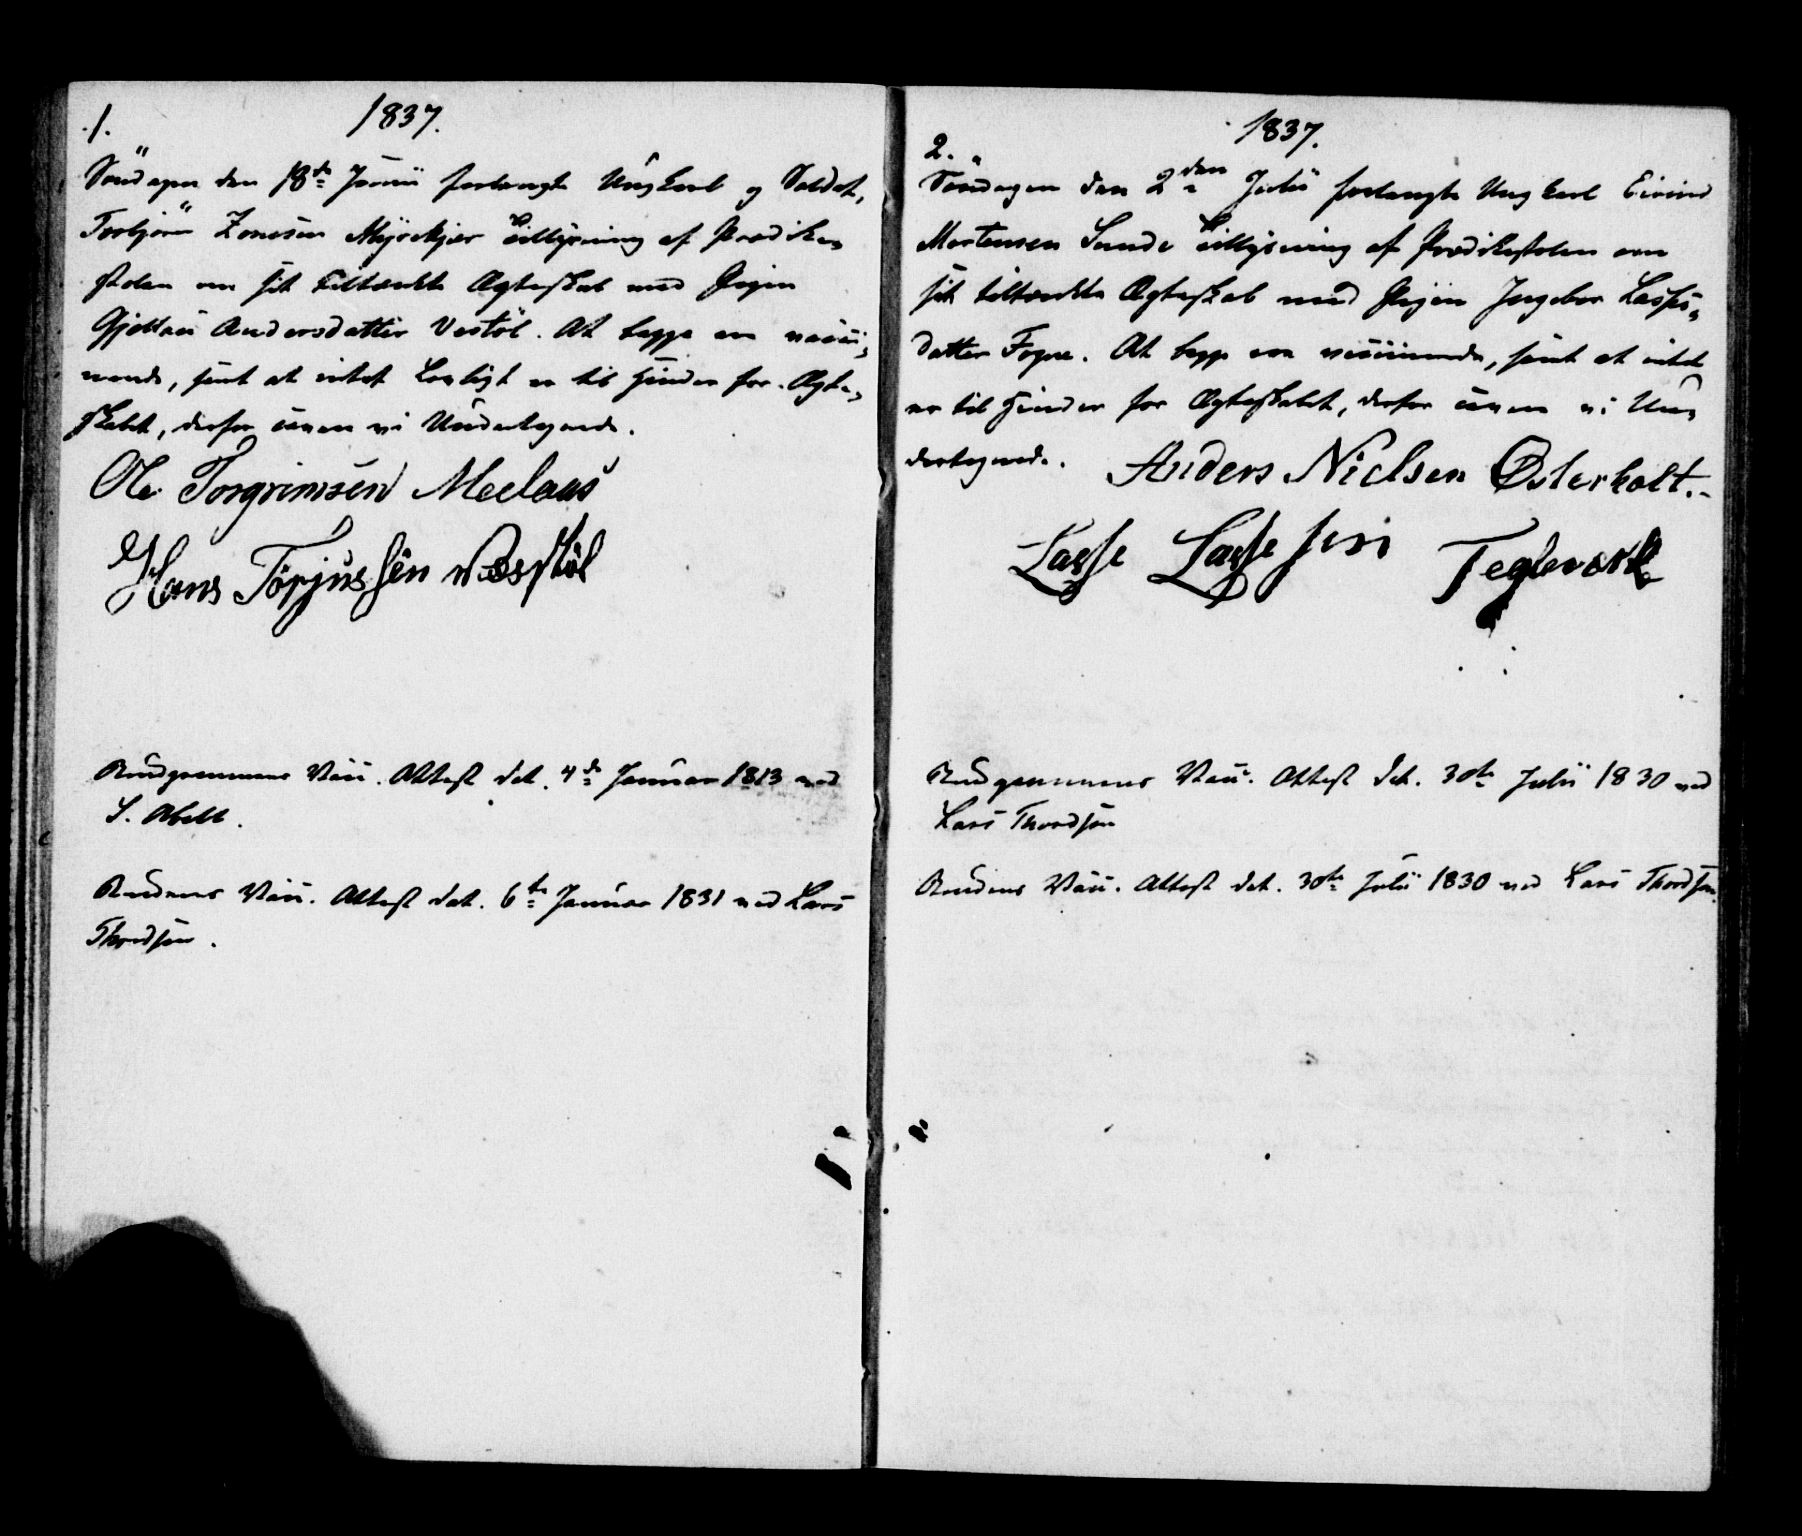 1.
1837.
Söndagen den 18de Junii forlangte Ungkarl og Soldat,
Torbjörn Zonesen Myrekjær Tillysning af Prædike-
stolen om sit tiltænkte Ægteskab med Pigen
Andersdatter Vestöl. At begge ere vacci-
nerede, samt at intet Lovligt er til Hinder for Ægte-
skabet, derfor caverer vi Undertegnede.
Ole Torgrimsen Meelaas
Hans Torjussen Vesstöl
Brudgommens Vac. Attest dat. 4de Januar 1813 ved
S. Abell.
Brudens Vac. Attest dat. 6te Januar 1831 ved Lars
Thordsen.
2.
1837.
Söndagen den 2den Julii forlangte Ungkarl Eivind
Mortensen Sunde Tillysning af Prædikestolen om
sit tiltænkte Ægteskab med Pigen Ingebor Lasses-
datter Fogne. At begge ere vaccinerede, samt at intet
er til Hinder for Ægteskabet, derfor caverer vi Un-
dertegnede.
Anders Nielsen Østerholt.
Lasse Lassesen Teglverk
Brudgommens Vac. Attest dat. 30te Julii 1830 ved
Lars Thordsen
Brudens Vac. Attest dat. 30te Julii 1830 ved Lars Thordsen.